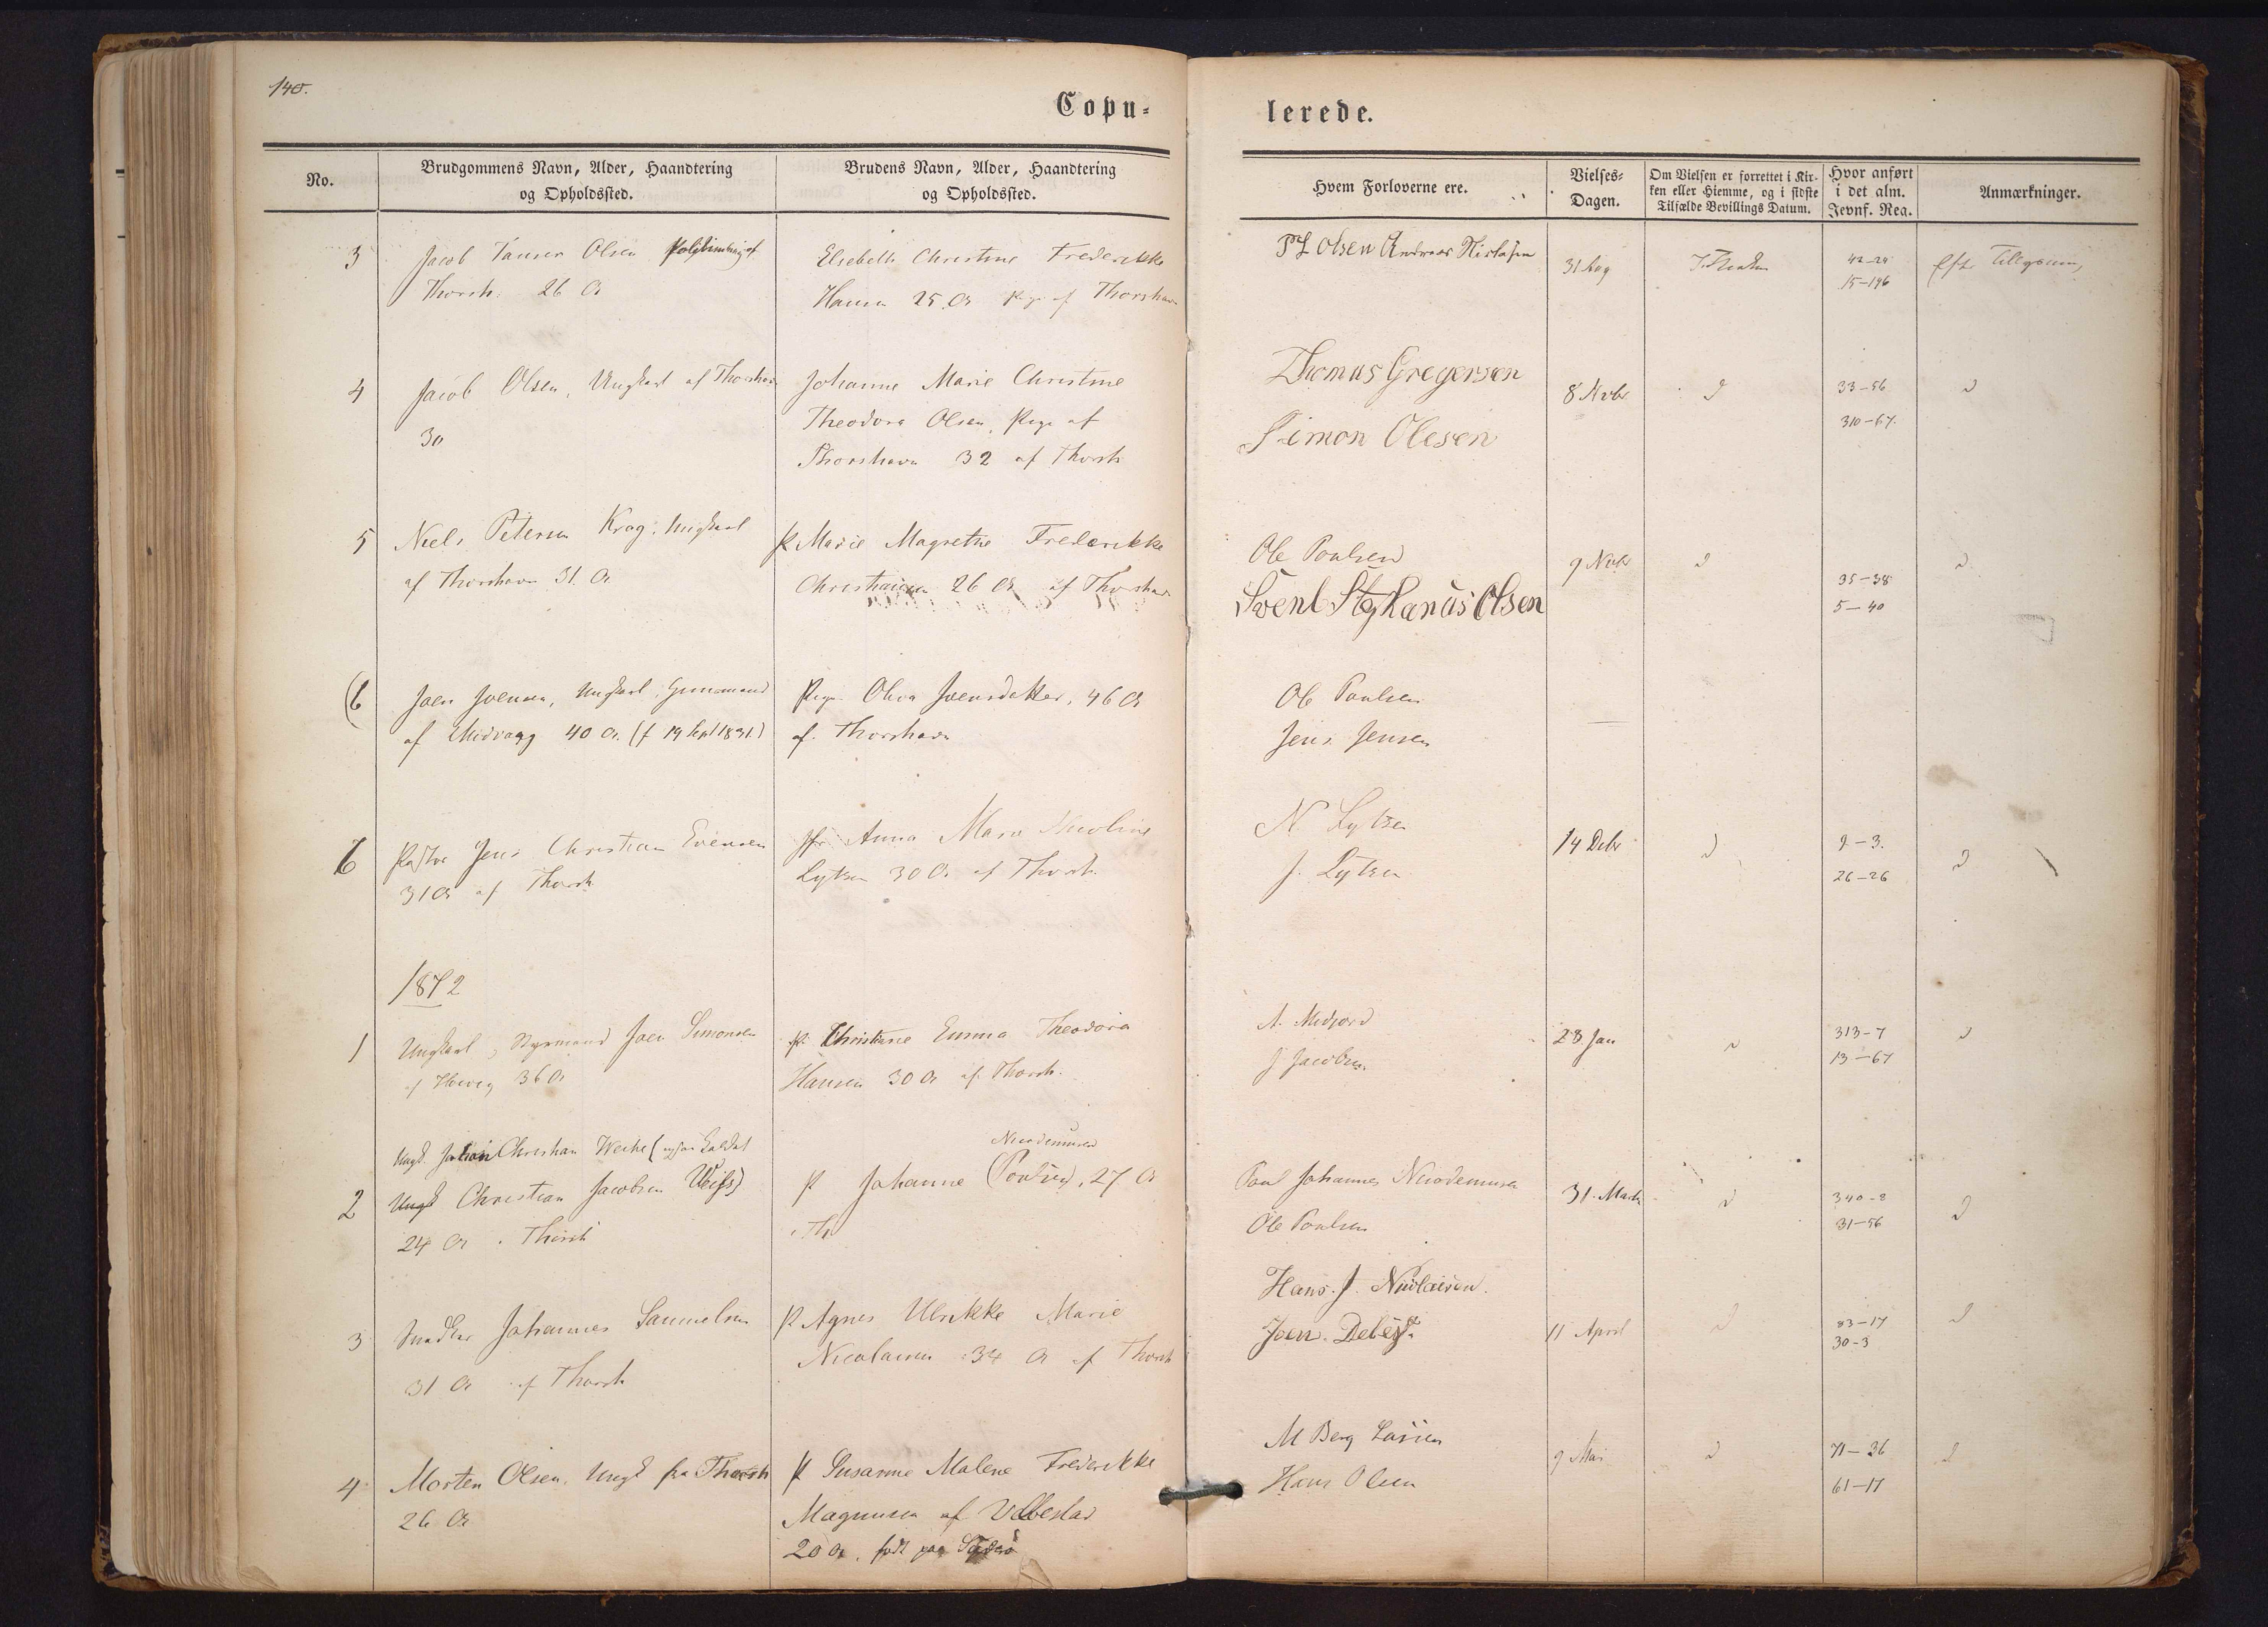 140.
Copu-
lerede.
No.
Brudgommens Navn, Alder, Haandtering
og Opholdssted.
Brudens Navn, Alder, Haandtering
og Opholdssted.
Hvem Forloverne ere.
Vielses-
Dagen.
Om Vielsen er forrettet i Kir-
ken eller Hiemme, og i sidste
Tilfælde Bevillings Datum.
Hvor anført
i det alm.
Jevnf. Reg.
Anmærkninger.
3
Jacob Olsen
Thorsh. 26 A
Elsebeth Christine Frederikke
Hansen 25 A Pige af Thorshavn
P L Olsen Andreas
31 Aug
42-24
15-196
4
Jacob Olsen, Ungkarl af Thorshavn
30
Johanne Marie Christine
Theodora Olsen, Pige af
Thorshavn 32 af Thorsh
Thomas Gregersen
Simon Olesen
8 Novbr
33-56
310-67.
5
Niels Petersen Krog, Ungkarl
af Thorshavn 31. A
P Marie Magrethe Frederikke
Christiansen 26 A af Thorshavn
Ole Poulsen
Olsen
9 Novbr
35-38
5-40
6
Joen Joensen, Ungkarl,
af Midvaag 40 A. (f 19 Sept 1831.)
Pige Oliva Joensdatter, 46 A
af Thorshavn
Ole Poulsen
Jens Jensen
6
Jens Christian Evensen
31 A af Thorsh
Anna Marie Nicoline
Lytzen 30 A. af Thorsh.
N. Lytzen
J. Lytzen
14 Debr
9-3.
26-26
1872
1
Ungkarl, Styrmand Joen Simonsen
36 A
P. Christiane Emma Theodora
Hansen 30 A af Thorsh.
A. Midjord
J Jacobsen
28 Jan
313-7
13-67
2
Ungk. Christian Weihe
Ungk Christian Jacobsen
24 A. Thorsh
Nicodemusen
P Johanne (Poulsen), 27 A
Th
Poul Johannes Nicodemusen
Ole Poulsen
31. Marts
340-8
31-56
3
Snedker Johannes Samuelsen
31 A af Thorsh
P Agnes Ulrikke Marie
Nicolaisen 34 A af Thorsh
Hans. J. Nicolaisen.
Joen. Debes.
11 April
83-17
30-3
4
Morten Olsen, Ungk fra Thorsh
26 A
P Susanne Malene Frederikke
Magnusen af Velbestad
20 A. født paa
M Berg
Hans Olsen
9 Mai
71-36
61-17